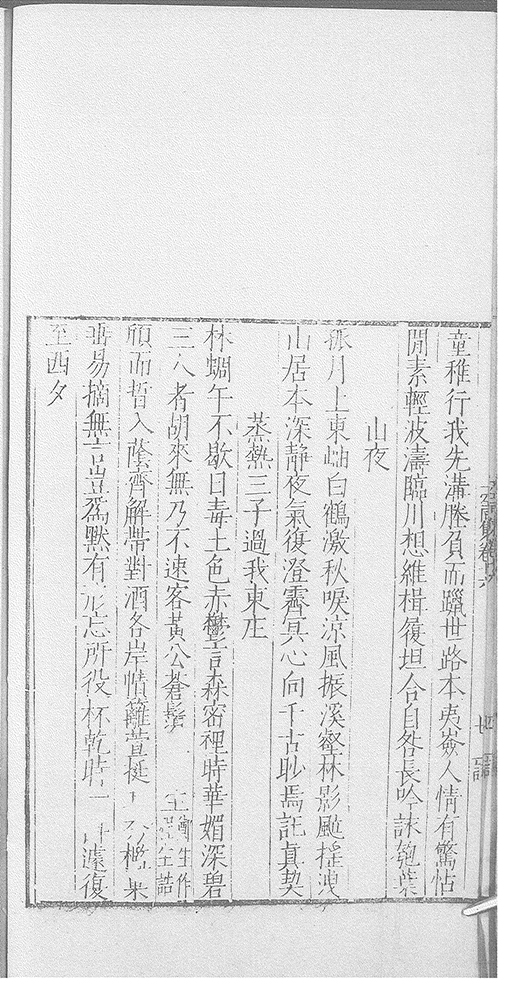 童稚行我先溝塍負而躐世路本夷險人情有驚怗
閒素輕波濤臨川想維楫履坦合自咎長吟誦匏葉
山夜
孤月上東岫白鶴激秋唳涼風振溪壑林影颭搖洩
山居本深靜夜氣復澄霽冥心向千古眇焉託真契
蒸熱三子過我東庄
林蜩午不歇日毒土色赤鬱言森密裡時華媚深碧
三人者胡來無乃不速客黃公蒼鬚 生
頎而晳入蔭齊解帶對酒各岸幘籬萱挺 檻果
曲易摘無言豈為默有形忘所役杯乾時 遠復
至西夕